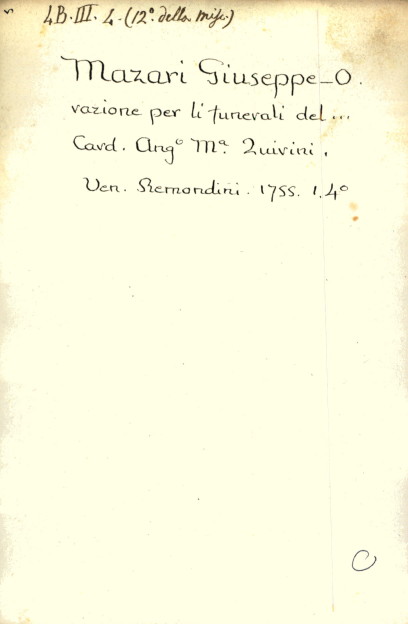 4B.III. 4. (12º. della misc.)
Mazari Giuseppe_O.
razione per li funerali del...
Card. Angº Mª. Quirini.
Ven. Remondini. 1755. 1.4º
C